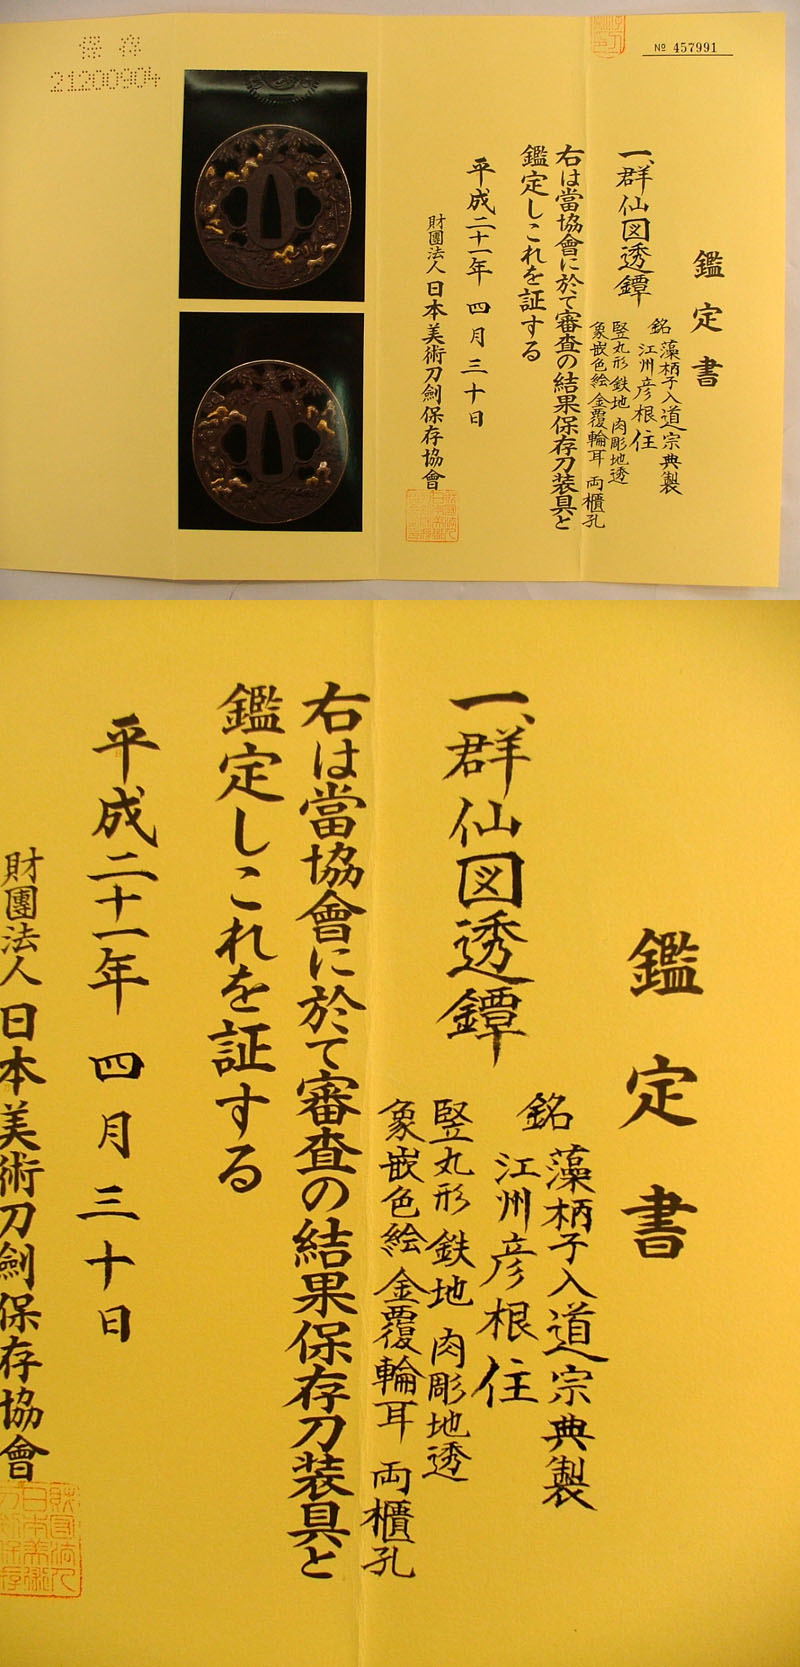 保存
21200904
№ 457991
鑑定書
一、群仙図透鐔
銘 藻柄子入道宗典製
江州彦根住
竪丸形 鉄地 肉彫地透
象嵌色絵 金覆輪耳 両櫃孔
右は當協會に於て審査の結果保存刀装具と
鑑定しこれを証する
平成二十一年 四月三十日
財團法人 日本美術刀劍保存協會
鑑定書
一、群仙図透鐔
銘 藻柄子入道宗典製
江州彦根住
竪丸形 鉄地 肉彫地透
象嵌色絵 金覆輪耳 両櫃孔
右は當協會に於て審査の結果保存刀装具と
鑑定しこれを証する
平成二十一年 四月三十日
財團法人 日本美術刀劍保存協會